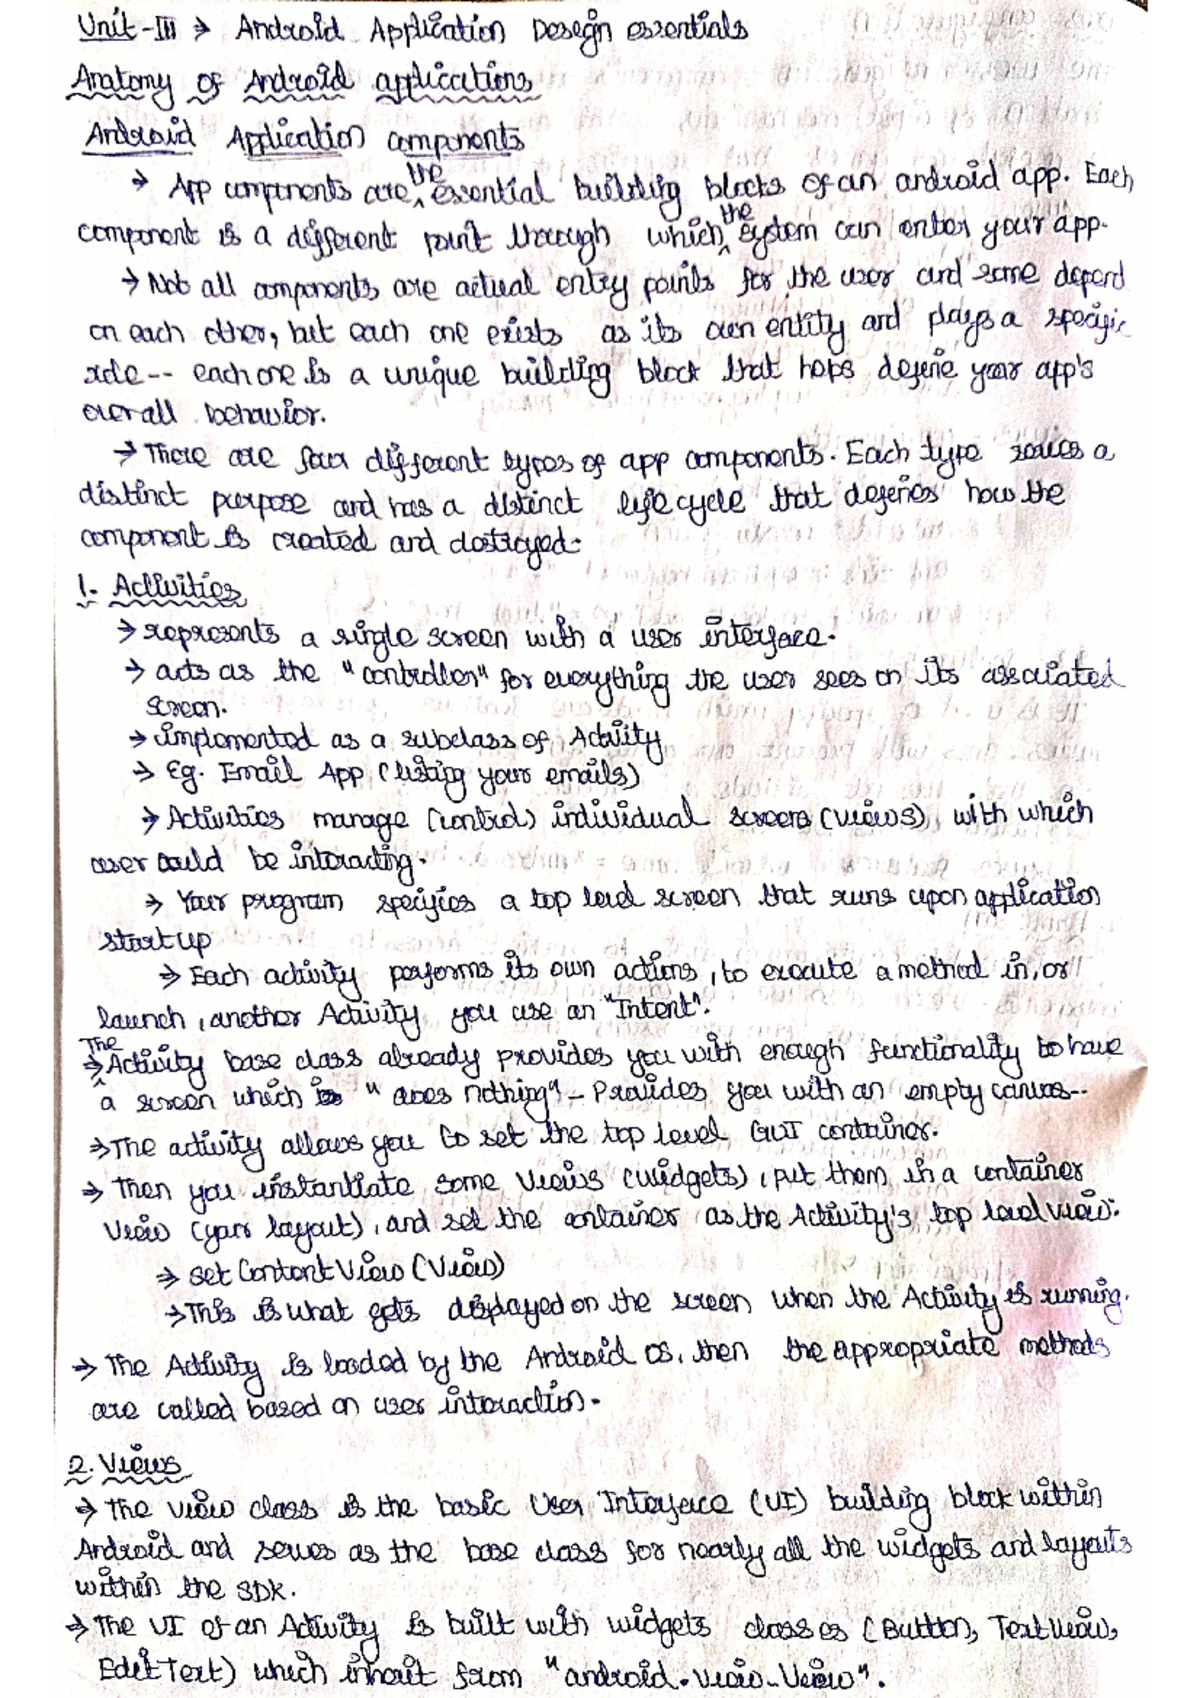 Unit-III → Android Application Desegin essentials
Anatomy of Android applications
Android Application components
→ App components are the essential building blocks of an android app. Each
component is a different point through which the system can enter your app.
→ Not all components are actual entry points for the user and some depend
on each other, but each one exists as its own entity and plays a specific
role -- each one is a unique building block that heps define your app's
overall behavior.
→ There are four different types of app components. Each type serves a
distinct purpose and has a distinct life cycle that defines how the
component is created and destroyed:
1. Activities
→ represents a single screen with a user interface.
→ acts as the "controller" for everything the user sees on its associated
screen.
→ implemented as a subclass of Activity
→ Eg. Email App (listing your emails)
→ Activities manage (control) individual screens (views), with which
user could be interacting.
→ Your program specifies a top level screen that runs upon application
start up
→ Each activity performs its own actions, to execute a method in, or
launch, another Activity you use an "Intent".
→ The Activity base class already provides you with enough functionality to have
a screen which is "does nothing" - Provides you with an empty canvas--
→ The activity allows you to set the top level GUI container.
→ Then you instantiate some Views (widgets), put them in a container
View (your layout), and set the container as the Activity's top level view:
→ set Content View (View)
→ This is what gets displayed on the screen when the Activity is running.
→ The Activity is loaded by the Android OS, then the appropriate methods
are called based on user interaction.
2. Views
→ The view class is the basic User Interface (UI) building block within
Android and serves as the base class for nearly all the widgets and layouts
within the SDK.
→ The UI of an Activity is built with widgets classes (Button, TextView,
EditText) which inherit from "android.view.View".